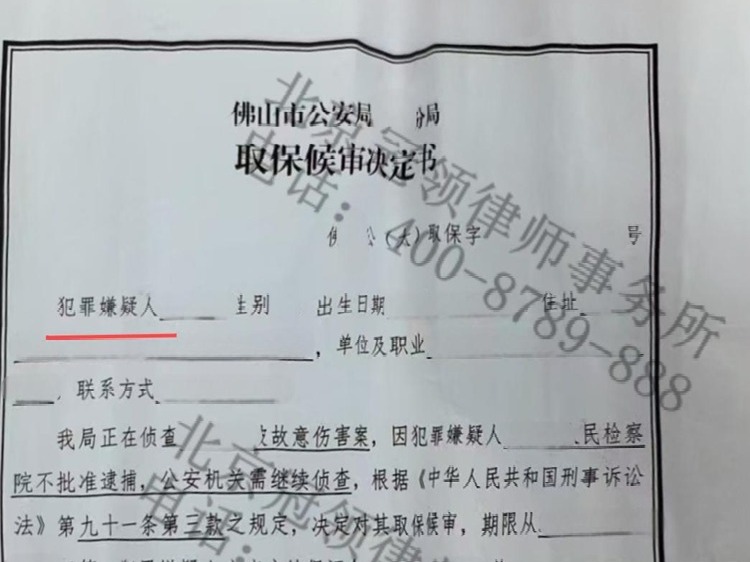 佛山市公安局 分局
取保候审决定书
公(大)取保字 号
犯罪嫌疑人 性别 出生日期 住址
,单位及职业
,联系方式
我局正在侦查 故意伤害案,因犯罪嫌疑人 民检察
院不批准逮捕,公安机关需继续侦查,根据《中华人民共和国刑事诉讼
法》第九十一条第三款之规定,决定对其取保候审,期限从
北京冠领律师事务所
电话:400-8789-888
北京冠领律师
电话: